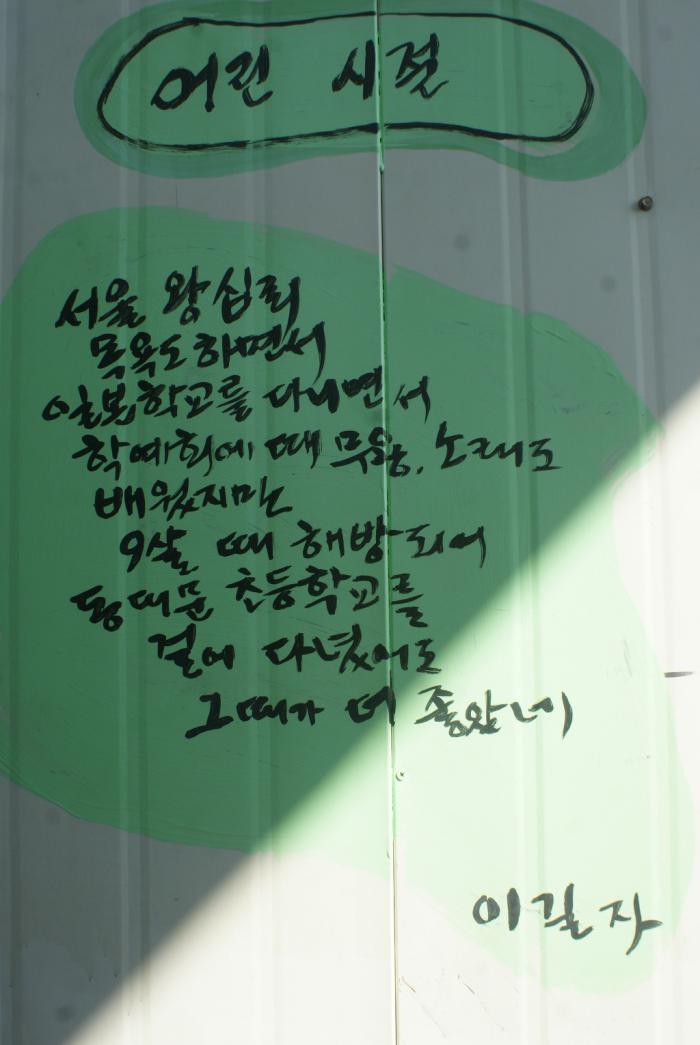 어린 시절
서울 왕십리
목욕도 하면서
일본학교를 다니면서
학예회에 때 무용, 노래도
배웠지만
9살 때 해방되어
동대문 초등학교를
걸어 다녔어도
그때가 더 좋았네
이길자